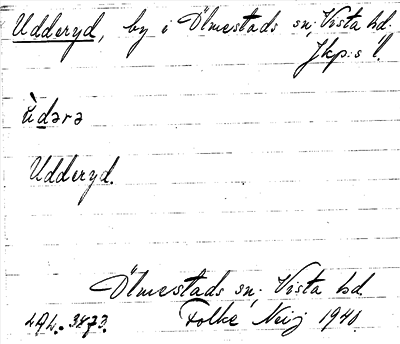 Udderyd, by i Ölmestads sn, Vista hd.
Jkp:s l.
ùdərə
Udderyd.
Ölmestads sn, Vista hd.
LAL. 3473. Folke Neij 1941.